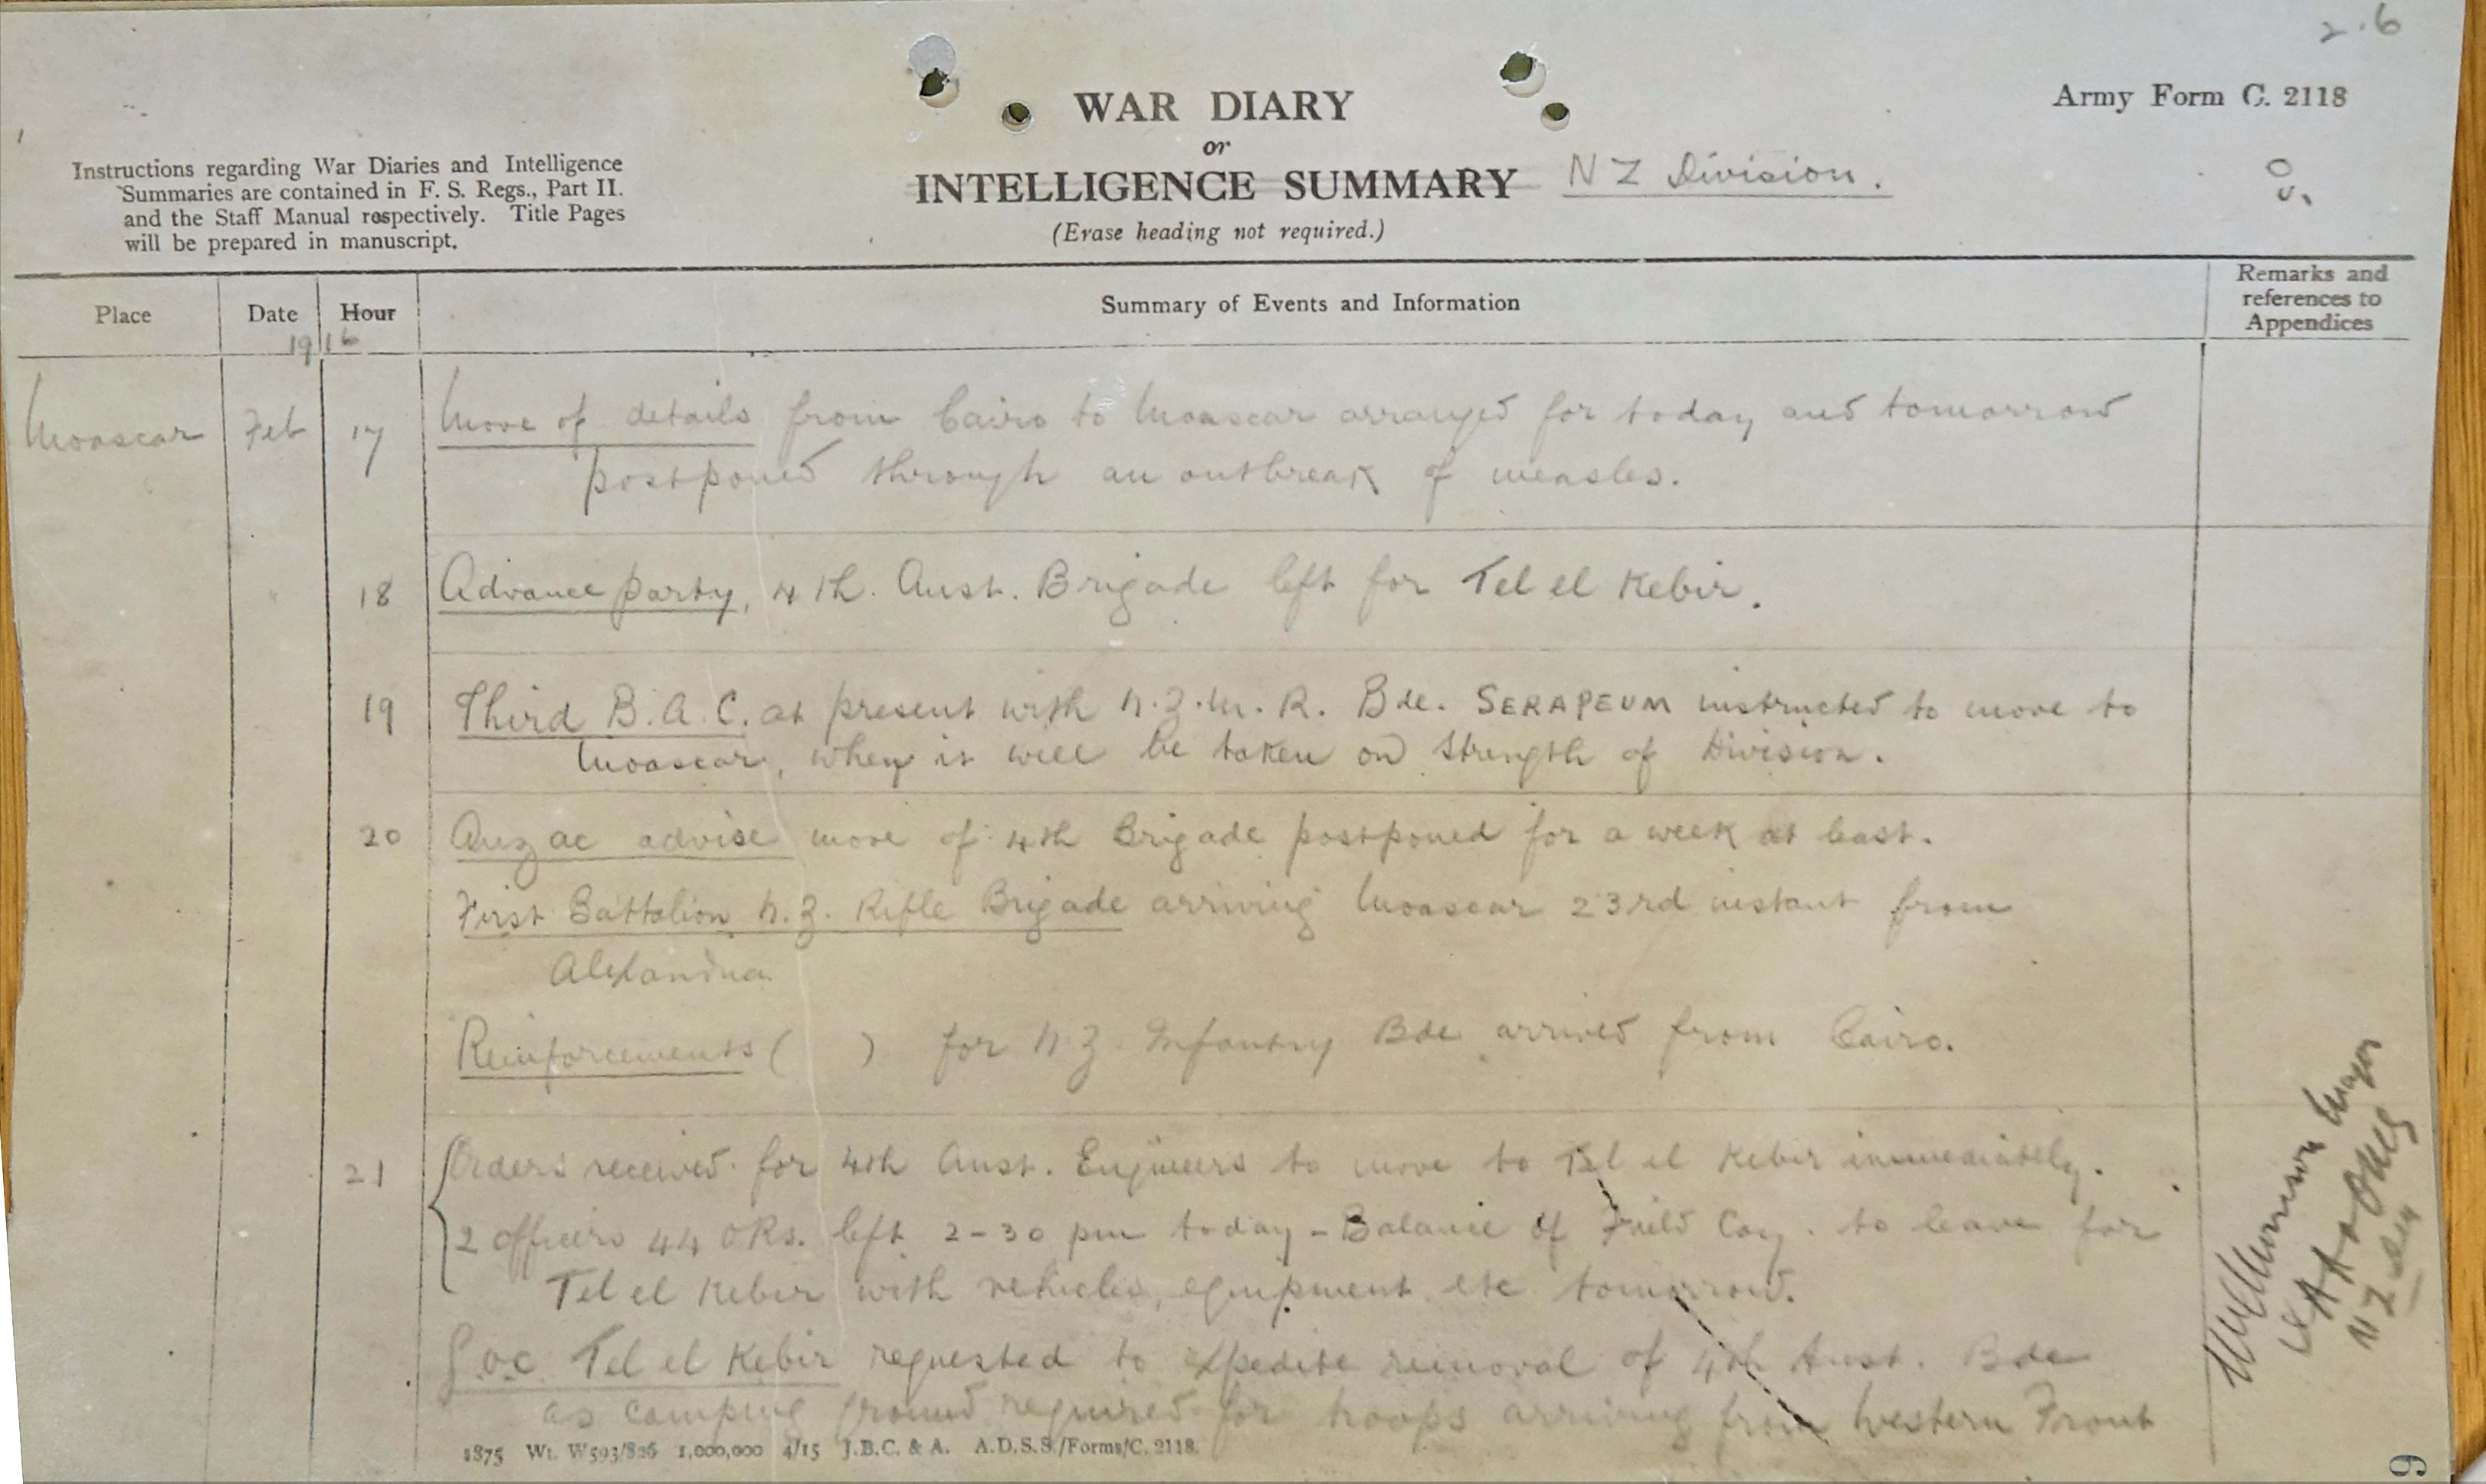 2.6
Army Form C. 2118
WAR DIARY
or
INTELLIGENCE SUMMARY
NZ Division.
(Erase heading not required.)
Instructions regarding War Diaries and Intelligence
Summaries are contained in F. S. Regs., Part II.
and the Staff Manual respectively. Title Pages
will be prepared in manuscript.
Place
Date
Hour
1916
Summary of Events and Information
Remarks and
references to
Appendices
Moascar Feb 17 Move of details from Cairo to Moascar arranged for today and tomorrow
postponed through an outbreak of measles.
18 Advance party, 4th. Aust. Brigade left for Tel el Kebir.
19 Third B.A.C. at present with N.Z.M.R. Bde. SERAPEUM instructed to move to
Moascar, when it will be taken on strength of Division.
20 Anzac advise move of 4th Brigade postponed for a week at least.
First Battalion N.Z. Rifle Brigade arriving Moascar 23rd instant from
Alexandria
Reinforcements ( ) for N.Z. Infantry Bde arrived from Cairo.
21 Orders received for 4th Aust. Engineers to move to Tel el Kebir immediately.
2 officers 44 ORs. left 2-30 pm today - Balance of Field Coy. to leave for
Tel el Kebir with vehicles, equipment etc tomorrow.
G.O.C. Tel el Kebir requested to expedite removal of 4th Aust. Bde
as camping ground required for troops arriving from Western Front
Major
NZ
1875 Wt. W593/826 1,000,000 4/15 J.B.C. & A. A.D.S.S./Forms/C. 2118.
6